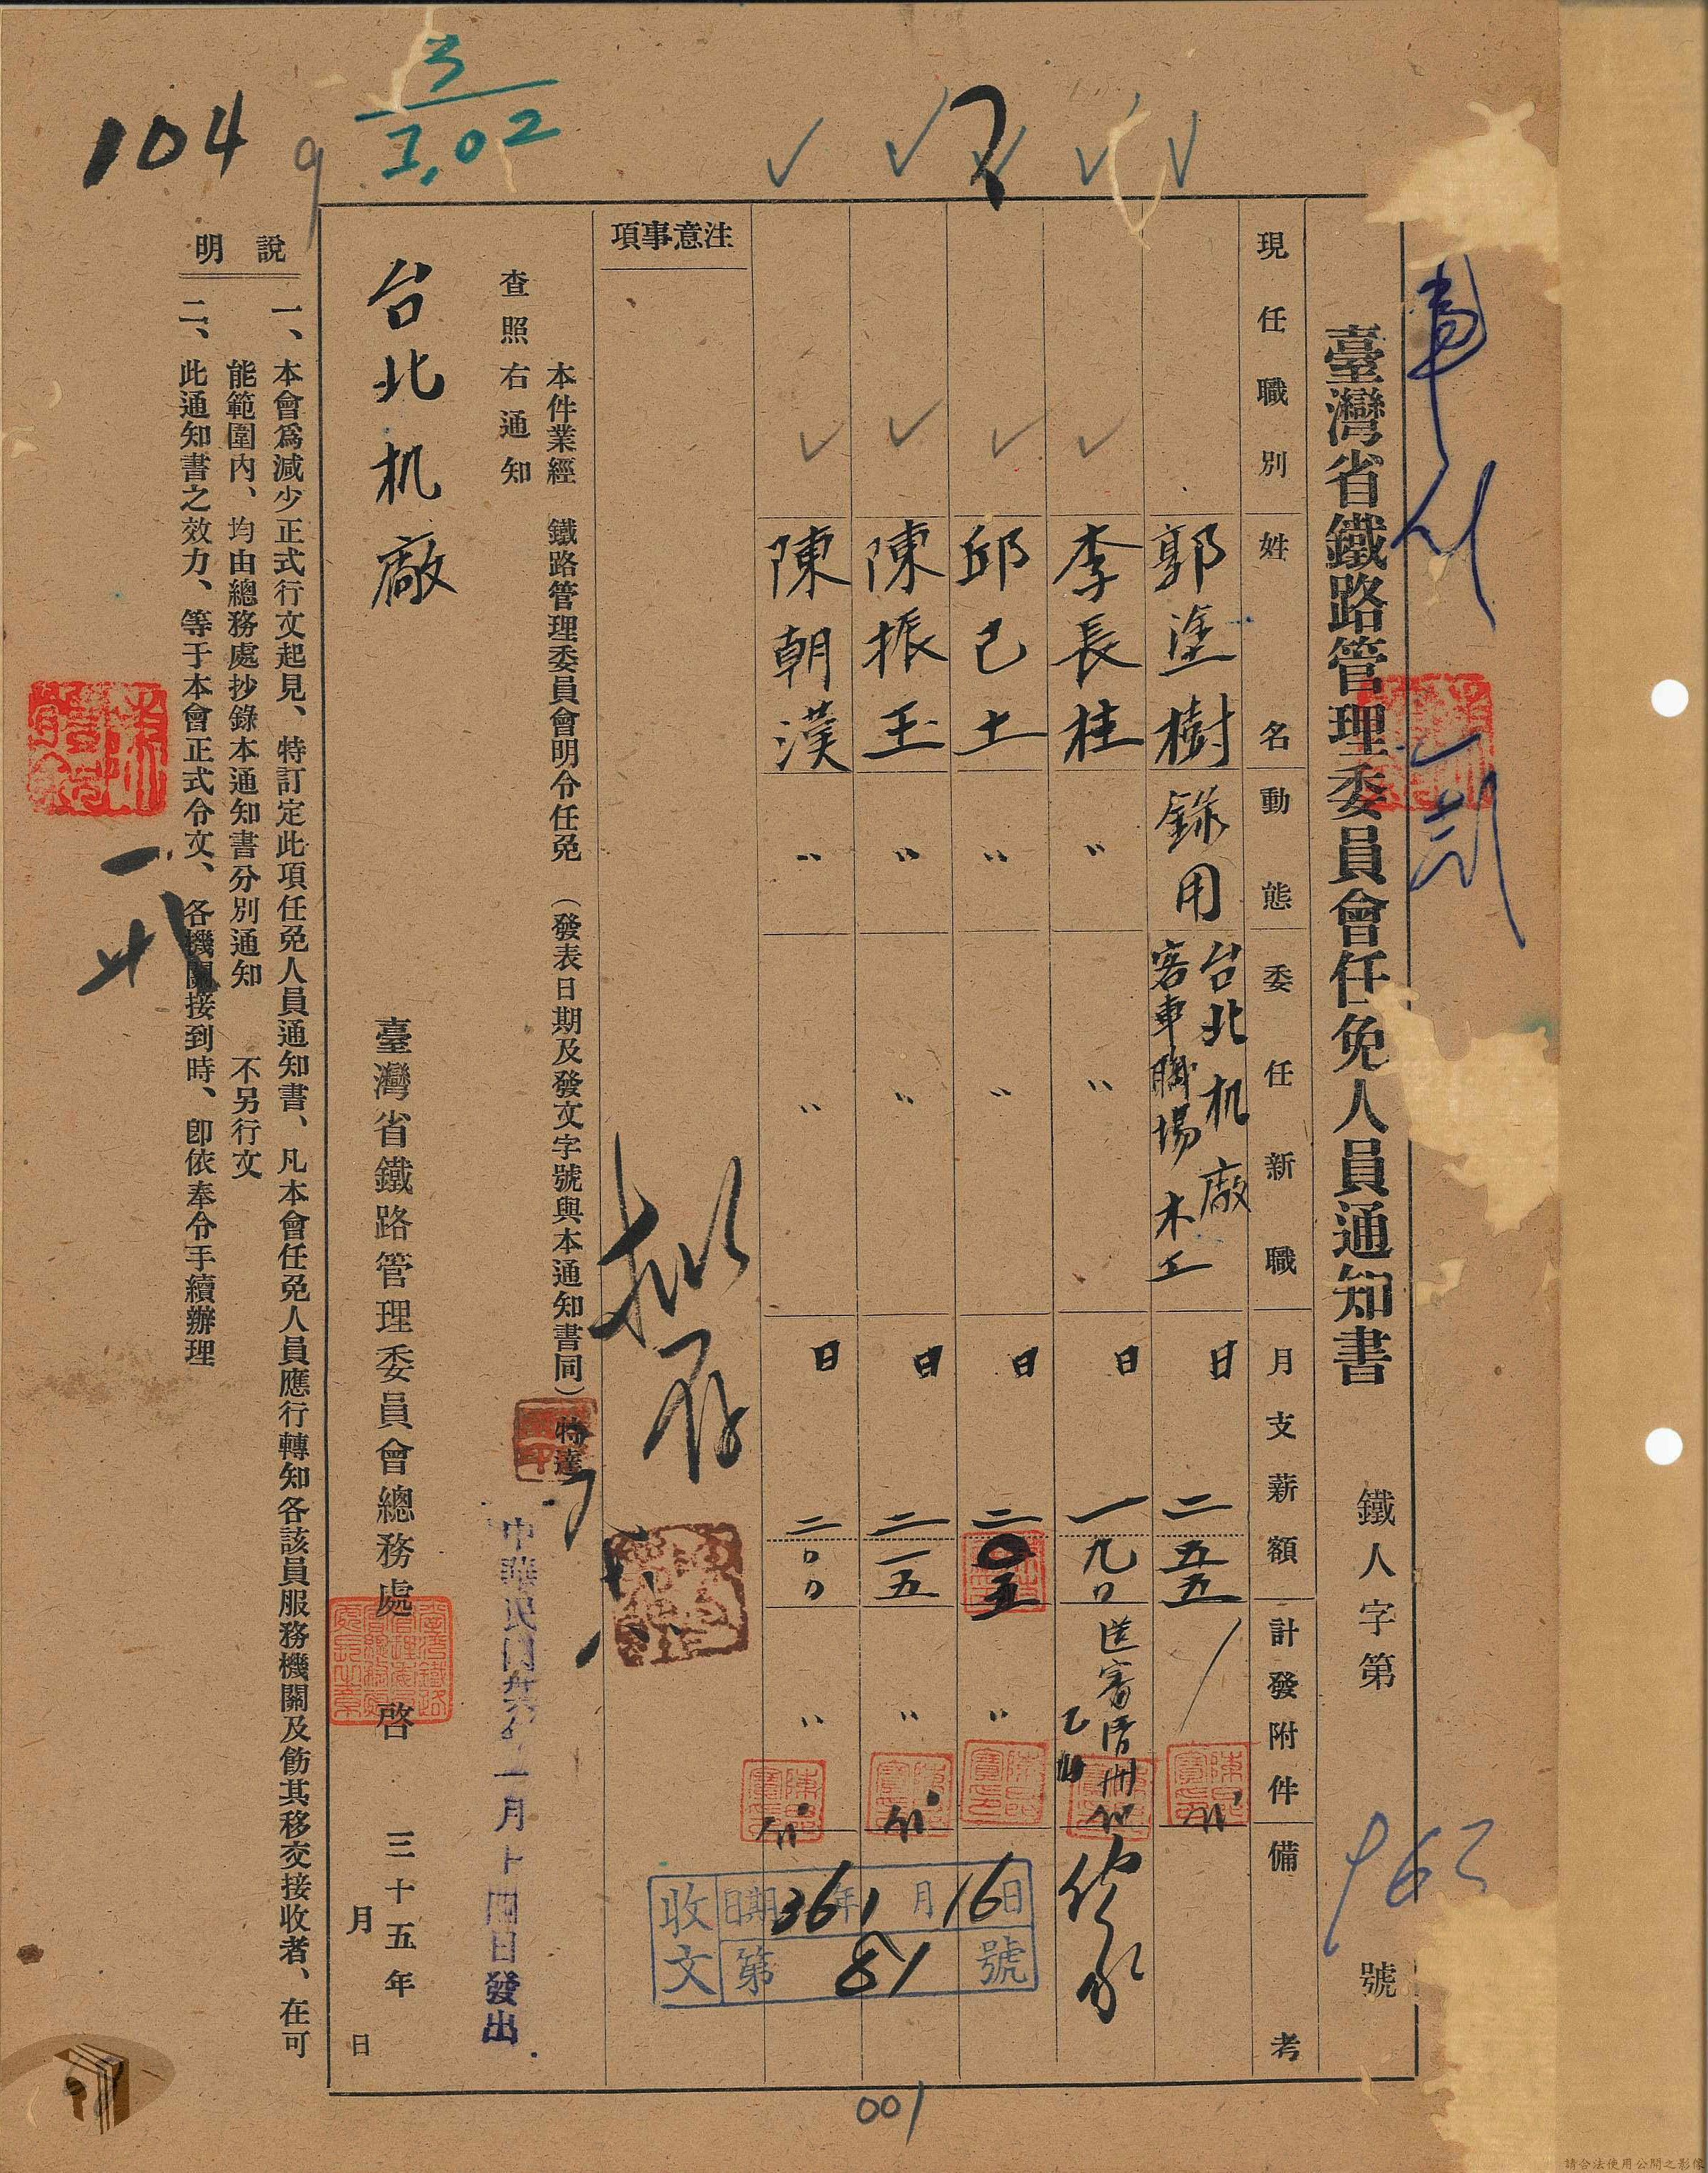 3
3.02
104
9
臺灣省鐵路管理委員會任免人員通知書 鐵人字第 號
現任職別 姓名 動態 委任新職 月支薪額 計發附件 備考
郭塗樹 錄用 台北机廠 客車職場木工 日 二五五
李長桂 〃 〃 日 一九〇 送審清冊
邱己土 〃 〃 日 二〇五 〃
陳振玉 〃 〃 日 二一五 〃
陳朝漢 〃 〃 日 二〇〇 〃
注意事項
收文 日期 36年1月16日
第 81 號
本件業經 鐵路管理委員會明令任免 (發表日期及發文字號與本通知書同) 特達
查照右通知
中華民國卅六年一月十四日發出
台北机廠
臺灣省鐵路管理委員會總務處 啓 三十五年 月 日
說明
一、本會爲減少正式行文起見、特訂定此項任免人員通知書、凡本會任免人員應行轉知各該員服務機關及飭其移交接收者、在可
能範圍內、均由總務處抄錄本通知書分別通知 不另行文
二、此通知書之效力、等于本會正式令文、各機關接到時、卽依奉令手續辦理
001
請合法使用公開之影像